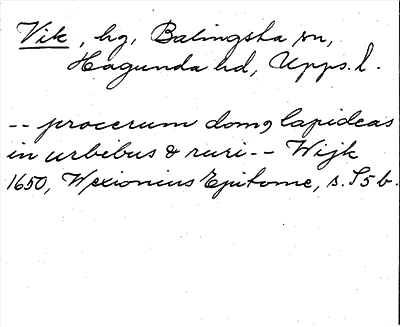 Vik, hg, Balingsta sn,
Hagunda hd, Upps. l.
-- procerum domꝰ lapideas
in urbebus & ruri -- Wijk
1650, Wexionius Epitome, s. S5b.